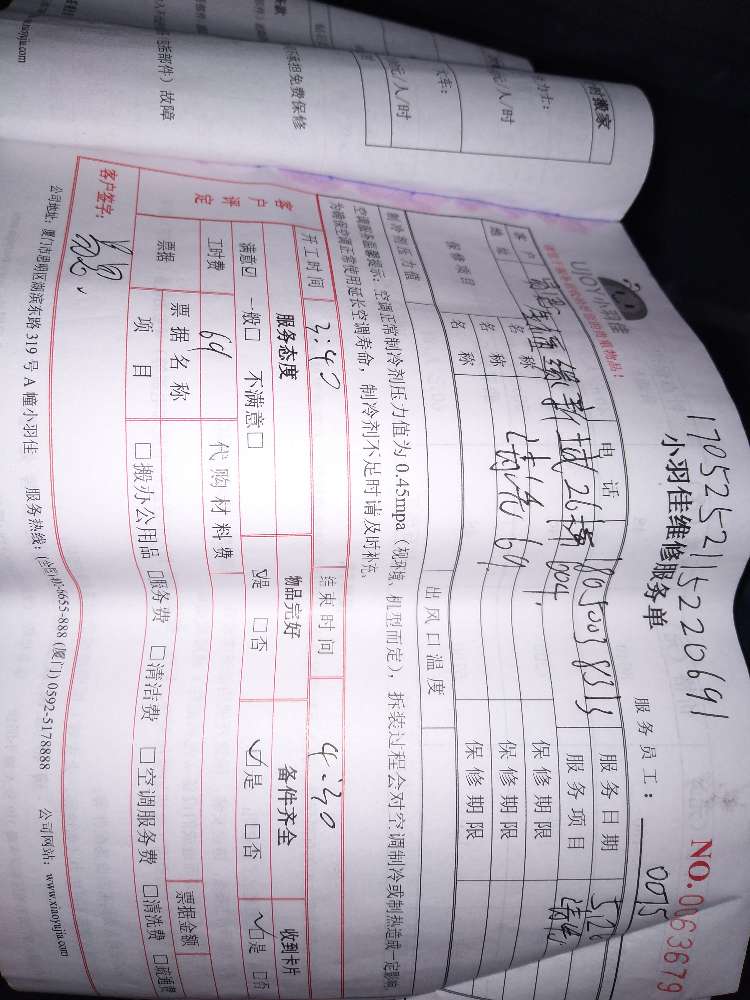 1705252115220691
小羽佳维修服务单
NO.0063679
UJOY小羽佳
服务员工： 0075
客户
电话
服务日期 5.26
地址
26栋 604
服务项目 清洗
保修项目
名称
保修期限
名称 清洗 69
保修期限
名称
保修期限
制冷剂压力值
出风口温度
空调服务温馨提示：空调正常制冷剂压力值为0.45mpa（视环境、机型而定），拆装过程会对空调制冷或制热造成一定影响
为确保空调正常使用延长空调寿命，制冷剂不足时请及时补充。
开工时间 3:40
结束时间 4:30
客户评定
服务态度
物品完好
备件齐全
收到卡片
满意☑ 一般□ 不满意□
☑是 □否
☑是 □否
☑是 □否
工时费 69
代购材料费
票据
票据名称
票据金额
项目
□搬办公用品 □服务费 □清洁费 □空调服务费 □清洗费 □疏通费
客户签字：
公司地址：厦门市思明区湖滨东路319号A幢小羽佳 服务热线：(全国)400-6655-888 (厦门) 0592-5178888 公司网站：www.xiaoyujia.com
搬家
元/人/时
元/人/时
承担免费保修
部件）故障
xiaoyujia.com